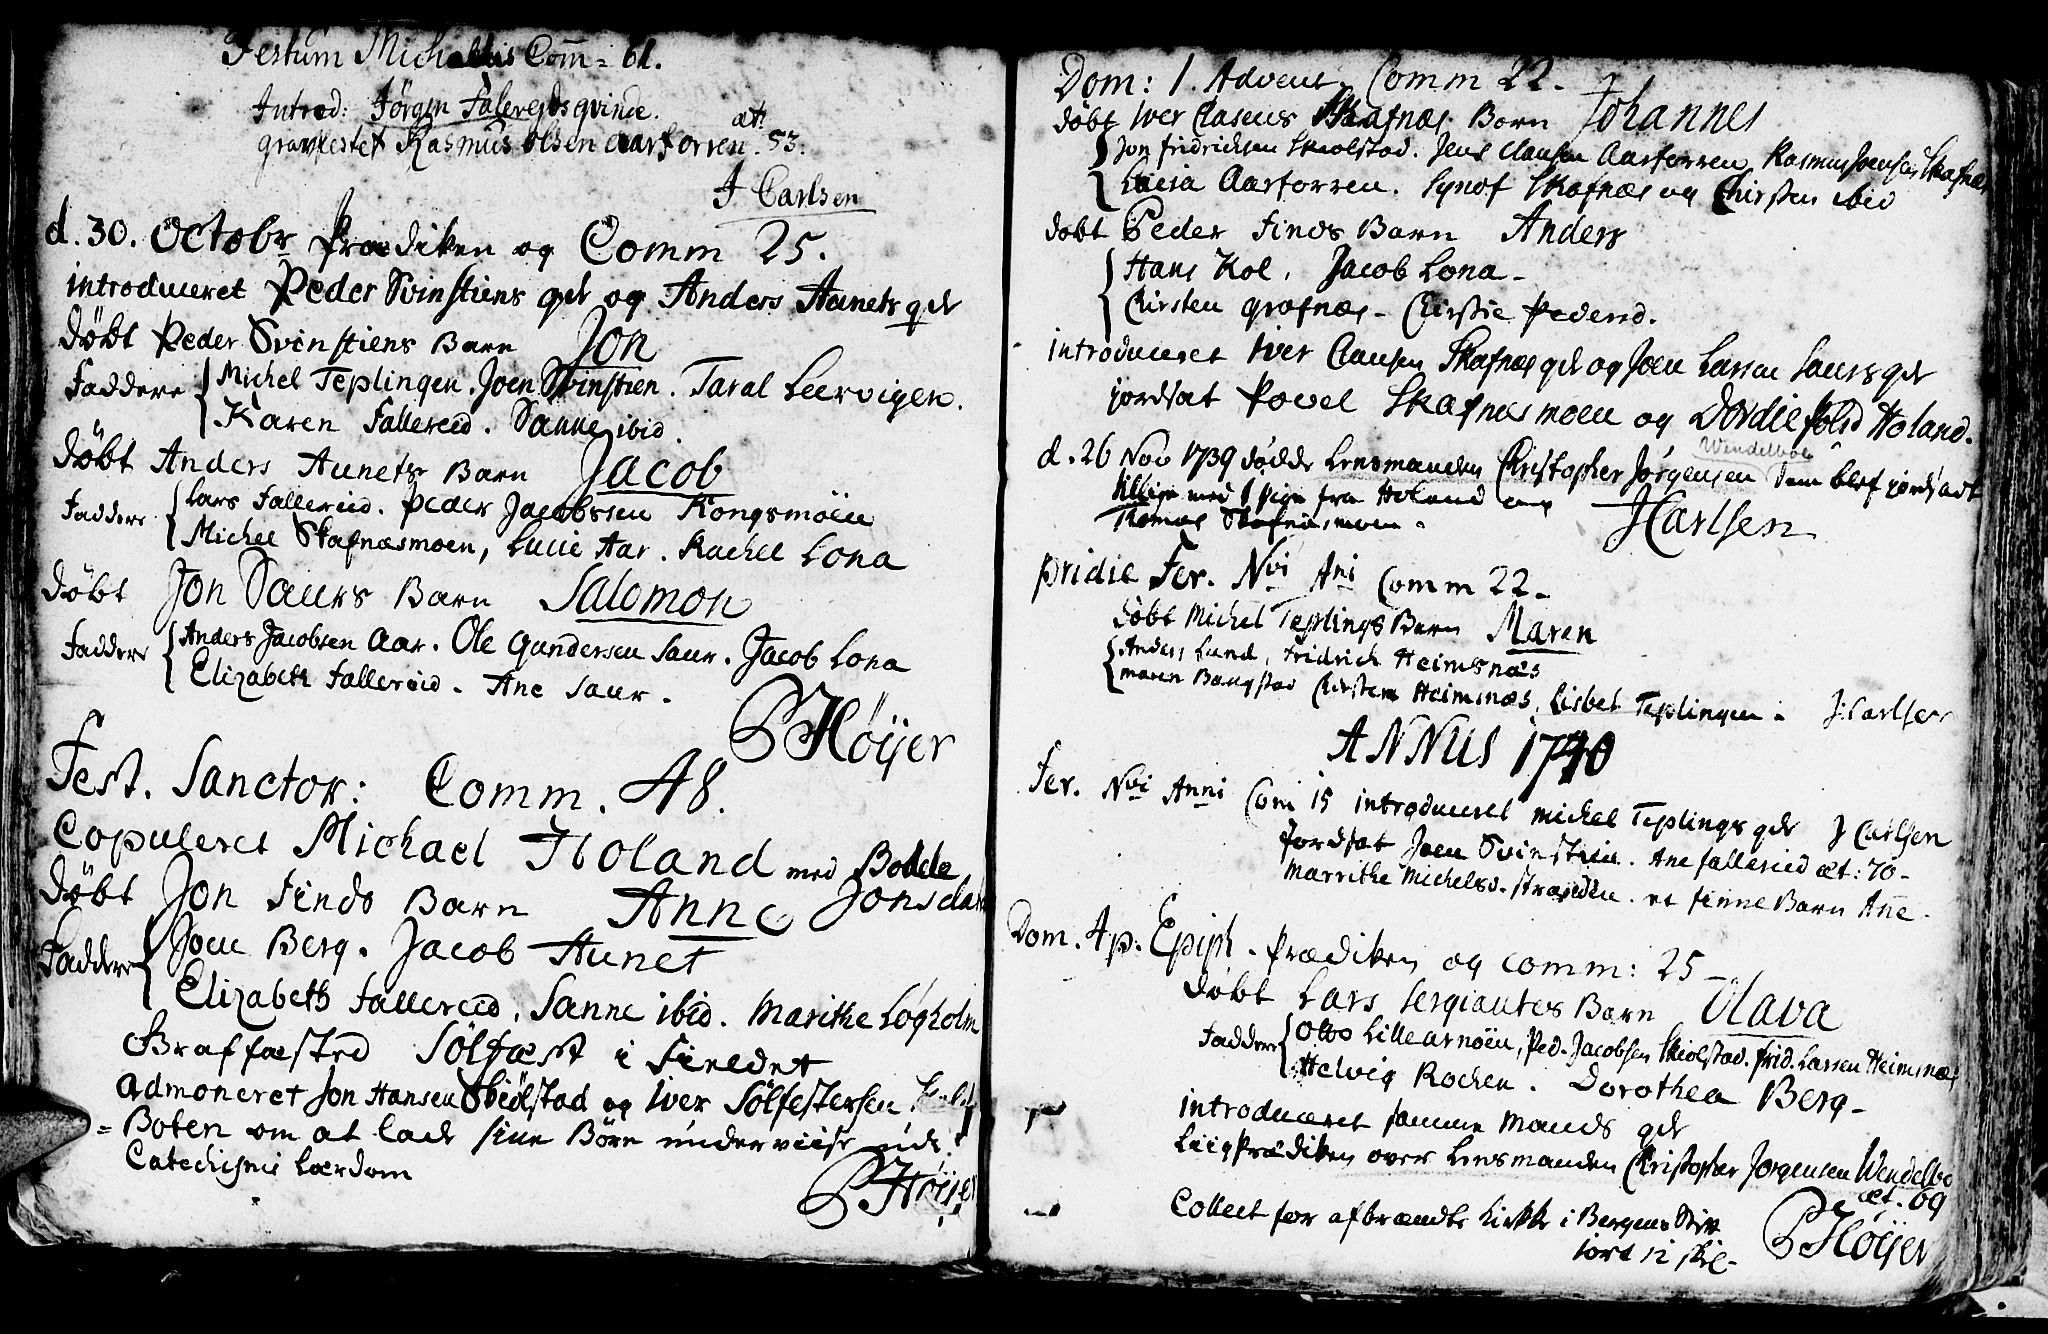 Festum Michaelis Com̄ = 61.
Introd: Jørgen Falereids qvinde.
gravfestet Rasmus Olsen aarforren. æt: 53.
J Carlsen
d. 30. Octobr Prædiken og Comm 25.
introduceret Peder Svinstiens qde og Anders Aunets qde
døbt Peder Svinstiens Barn Jon
Faddere Michel Teplingen. Joen Svinstien. Taral Leervigen.
Karen Fallereid. Sanne ibid.
døbt Anders Aunets Barn Jacob
Faddere Lars Fallereid. Peder Jacobssen Kongsmoen
Michel Skafnæsmoen, Lucie Aar. Rachel Lona
døbt Jon Saurs Barn Salomon
Faddere Anders Jacobsen Aar. Ole Gundersen Saur. Jacob Lona
Elizabeth Fallereid. Ane Saur.
P Høyer
Fest. Sanctor: Comm. 48.
Copuleret Michael Holand med Bodde
Jonsdatt
døbt Jon Finds Barn Anne
Faddere Joen Berg. Jacob Aunet
Elizabeth Fallereid, Sanne ibid. Marithe Løgholm
Graffæsted Sølfæst i Fieldet
admoneret Jon Hansen Skiølstad og Iver Sølfestersen
= Boten om at lade sine Børn underviise udi
Catechismi Lærdom
P Høyer
Dom: 1. Advent, Comm 22.
døbt Iver Clasens Skafnæs Barn Johannes
Jon Fridrichsen Skiolstad. Jens Clausen Aarforren, Rasmus Joensen Skafnæs
Lucia Aarforren. Synof Skafnæs og Chirsten ibid
døbt Peder Finds Barn Anders
Hans Kol, Jacob Lona -
Chirsten Grafnæs - Chirstie Pedersd.
introduceret Iver Clausen Skafnæs qde og Joen Larsen Saurs qde
jordsat Povel Skafnæsmoen og Dordie Holand.
d. 26 Nov 1739 døde Lensmanden Christopher Jørgensen Wendelboe dem blef jordsadt
tillige med 1 pige fra Holand
Thomas Skafnæsmoen.
J Carlsen
pridie Fer. Nvi Ani Comm 22 -
døbt Michel Teplings Barn Maren
Anders Lund, Fridrich Heimsnæs
Maren Bangstad Chirsten Heimsnæs, Lisbet Teplingen. J: Carlsen
ANNUS 1740
Fer. Nvi Anni Com 15 introduceret Michel Teplings qde J Carlsen
Jordsat Joen Svinstien. Ane Fallereid æt: 70 -
Marrithe Michelsd. Stranden. et Finne Barn Ane.
Dom. 4 p. Epiph. Prædiken og comm: 25 -
døbt Lars Sergiantes Barn Olava
Faddere Otto Lillearnøen, Ped. Jacobsen Skiolstad. Frid. Larsen Heimsnæs
Helvig Rochen. Dorothea Berg -
introduceret samme Mands qde
Liigprædiken over Lensmanden Christopher Jørgensen Wendelbo
æt. 69
Collect for afbrændte Kirke i Bergens Stift
P Høyer